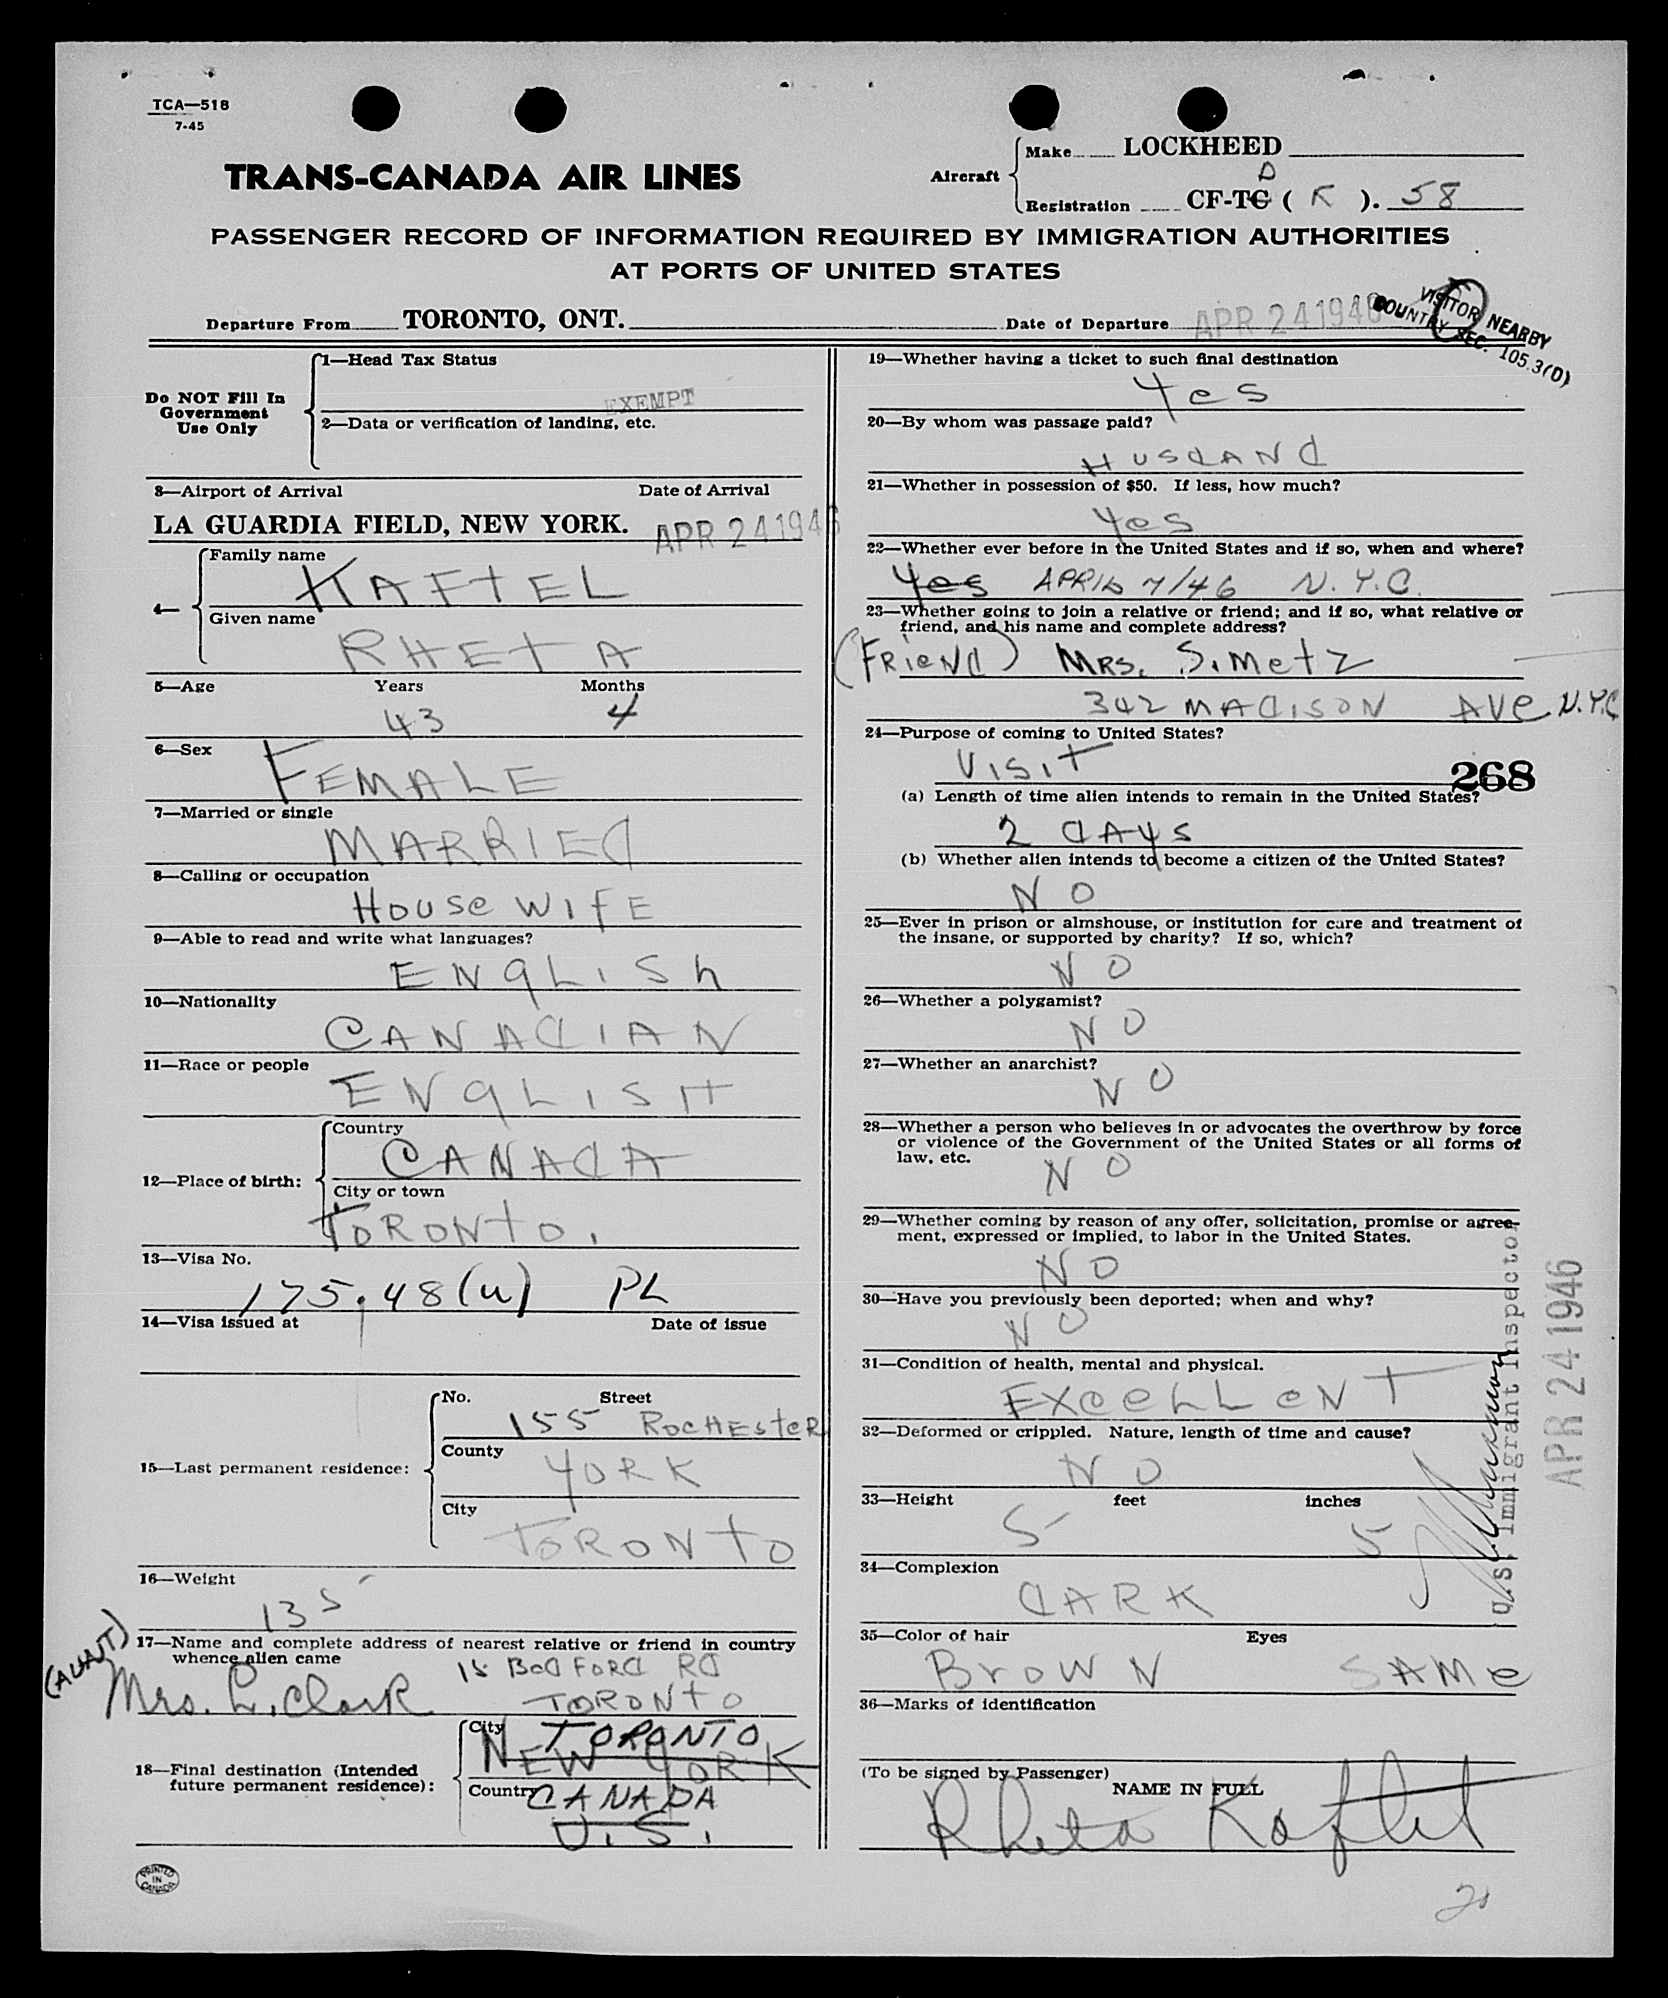 TCA—518
7-45
TRANS-CANADA AIR LINES
Aircraft
Make LOCKHEED
D
Registration CF-TC ( K ). 58
PASSENGER RECORD OF INFORMATION REQUIRED BY IMMIGRATION AUTHORITIES
AT PORTS OF UNITED STATES
Departure From TORONTO, ONT. Date of Departure APR 24 1946
VISITOR NEARBY
COUNTRY SEC. 105.3(D)
Do NOT Fill In
Government
Use Only
1—Head Tax Status
EXEMPT
2—Data or verification of landing, etc.
3—Airport of Arrival Date of Arrival
LA GUARDIA FIELD, NEW YORK. APR 24 1946
4—
Family name
KAFTEL
Given name
RHETA
5—Age Years Months
43 4
6—Sex
FEMALE
7—Married or single
MARRIED
8—Calling or occupation
House WIFE
9—Able to read and write what languages?
ENGLISh
10—Nationality
CANADIAN
11—Race or people
ENGLISH
12—Place of birth:
Country
CANADA
City or town
TORONTO.
13—Visa No.
175.48(u) PL
14—Visa issued at Date of issue
15—Last permanent residence:
No. Street
155 ROCHESTER
County
YORK
City
TORONTO
16—Weight
135
17—Name and complete address of nearest relative or friend in country
whence alien came
(AUNT)
15 BEDFORD RD
Mrs. L. Clark TORONTO
18—Final destination (Intended
future permanent residence):
City
TORONTO
NEW YORK
Country
CANADA
U.S.
PRINTED
IN
CANADA
19—Whether having a ticket to such final destination
Yes
20—By whom was passage paid?
HUSBAND
21—Whether in possession of $50. If less, how much?
Yes
22—Whether ever before in the United States and if so, when and where?
Yes APRIL 7/46 N.Y.C.
23—Whether going to join a relative or friend; and if so, what relative or
friend, and his name and complete address?
(FRIEND) MRS. S. Metz
342 MADISON AVE N.Y.C
24—Purpose of coming to United States?
VISIT
268
(a) Length of time alien intends to remain in the United States?
2 DAYS
(b) Whether alien intends to become a citizen of the United States?
NO
25—Ever in prison or almshouse, or institution for care and treatment of
the insane, or supported by charity? If so, which?
NO
26—Whether a polygamist?
NO
27—Whether an anarchist?
NO
28—Whether a person who believes in or advocates the overthrow by force
or violence of the Government of the United States or all forms of
law, etc.
NO
29—Whether coming by reason of any offer, solicitation, promise or agree-
ment, expressed or implied, to labor in the United States.
NO
30—Have you previously been deported; when and why?
NO
31—Condition of health, mental and physical.
EXCELLENT
32—Deformed or crippled. Nature, length of time and cause?
NO
33—Height feet inches
5 5
34—Complexion
DARK
35—Color of hair Eyes
BROWN SAME
36—Marks of identification
(To be signed by Passenger)
NAME IN FULL
Rheta Kaftel
U.S. Immigrant Inspector
APR 24 1946